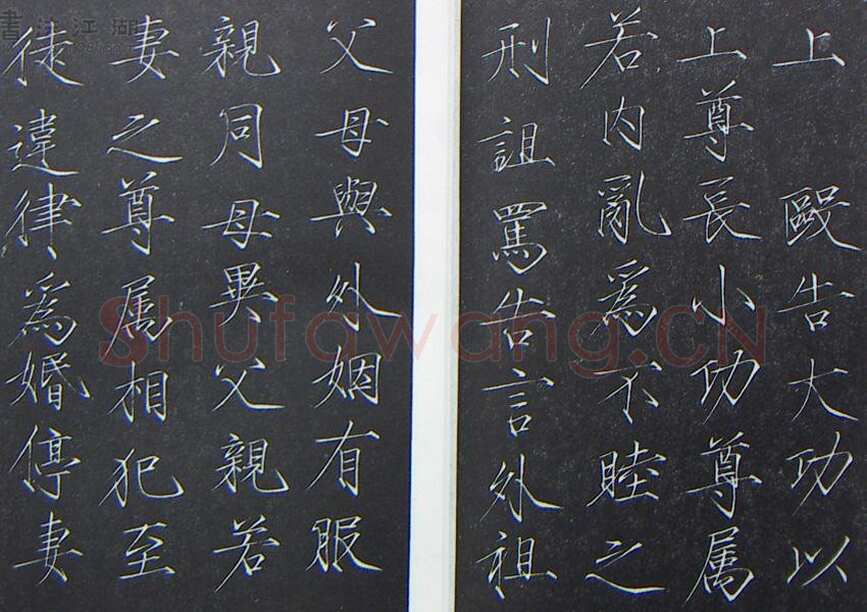 上 毆告大功以
上尊長小功尊属
若内亂爲不睦之
刑詛罵告言外祖
父母與外姻有服
親同母異父親若
妻之尊属相犯至
徒違律爲婚停妻
Shufawang.CN
書法江湖